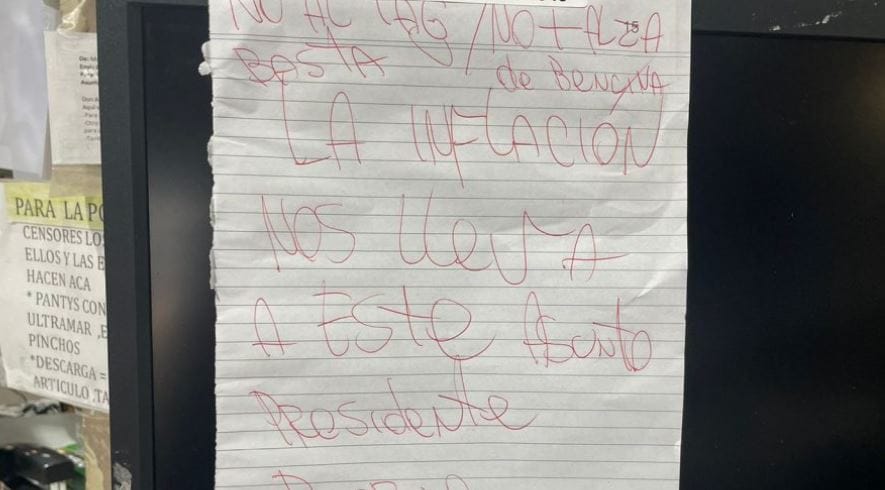 NO AL TAG / NO + ALZA
BASTA de BENCINA
LA INFLACIÓN
NOS lleva
A Este Asunto
Presidente
PARA LA
CENSORES
ELLOS Y LAS
HACEN ACA
* PANTYS CON
ULTRAMAR
PINCHOS
*DESCARGA =
ARTICULO